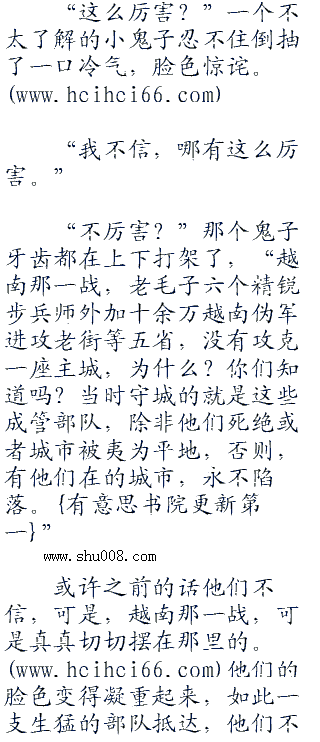 “这么厉害？”一个不
太了解的小鬼子忍不住倒抽
了一口冷气，脸色惊诧。
(www.hcihci66.com)
“我不信，哪有这么厉
害。”
“不厉害？”那个鬼子
牙齿都在上下打架了，“越
南那一战，老毛子六个精锐
步兵师外加十余万越南伪军
进攻老街等五省，没有攻克
一座主城，为什么？你们知
道吗？当时守城的就是这些
成管部队，除非他们死绝或
者城市被夷为平地，否则，
有他们在的城市，永不陷
落。{有意思书院更新第
一}”
www.shu008.com
或许之前的话他们不
信，可是，越南那一战，可
是真真切切摆在那里的。
(www.hcihci66.com)他们的
脸色变得凝重起来，如此一
支生猛的部队抵达，他们不